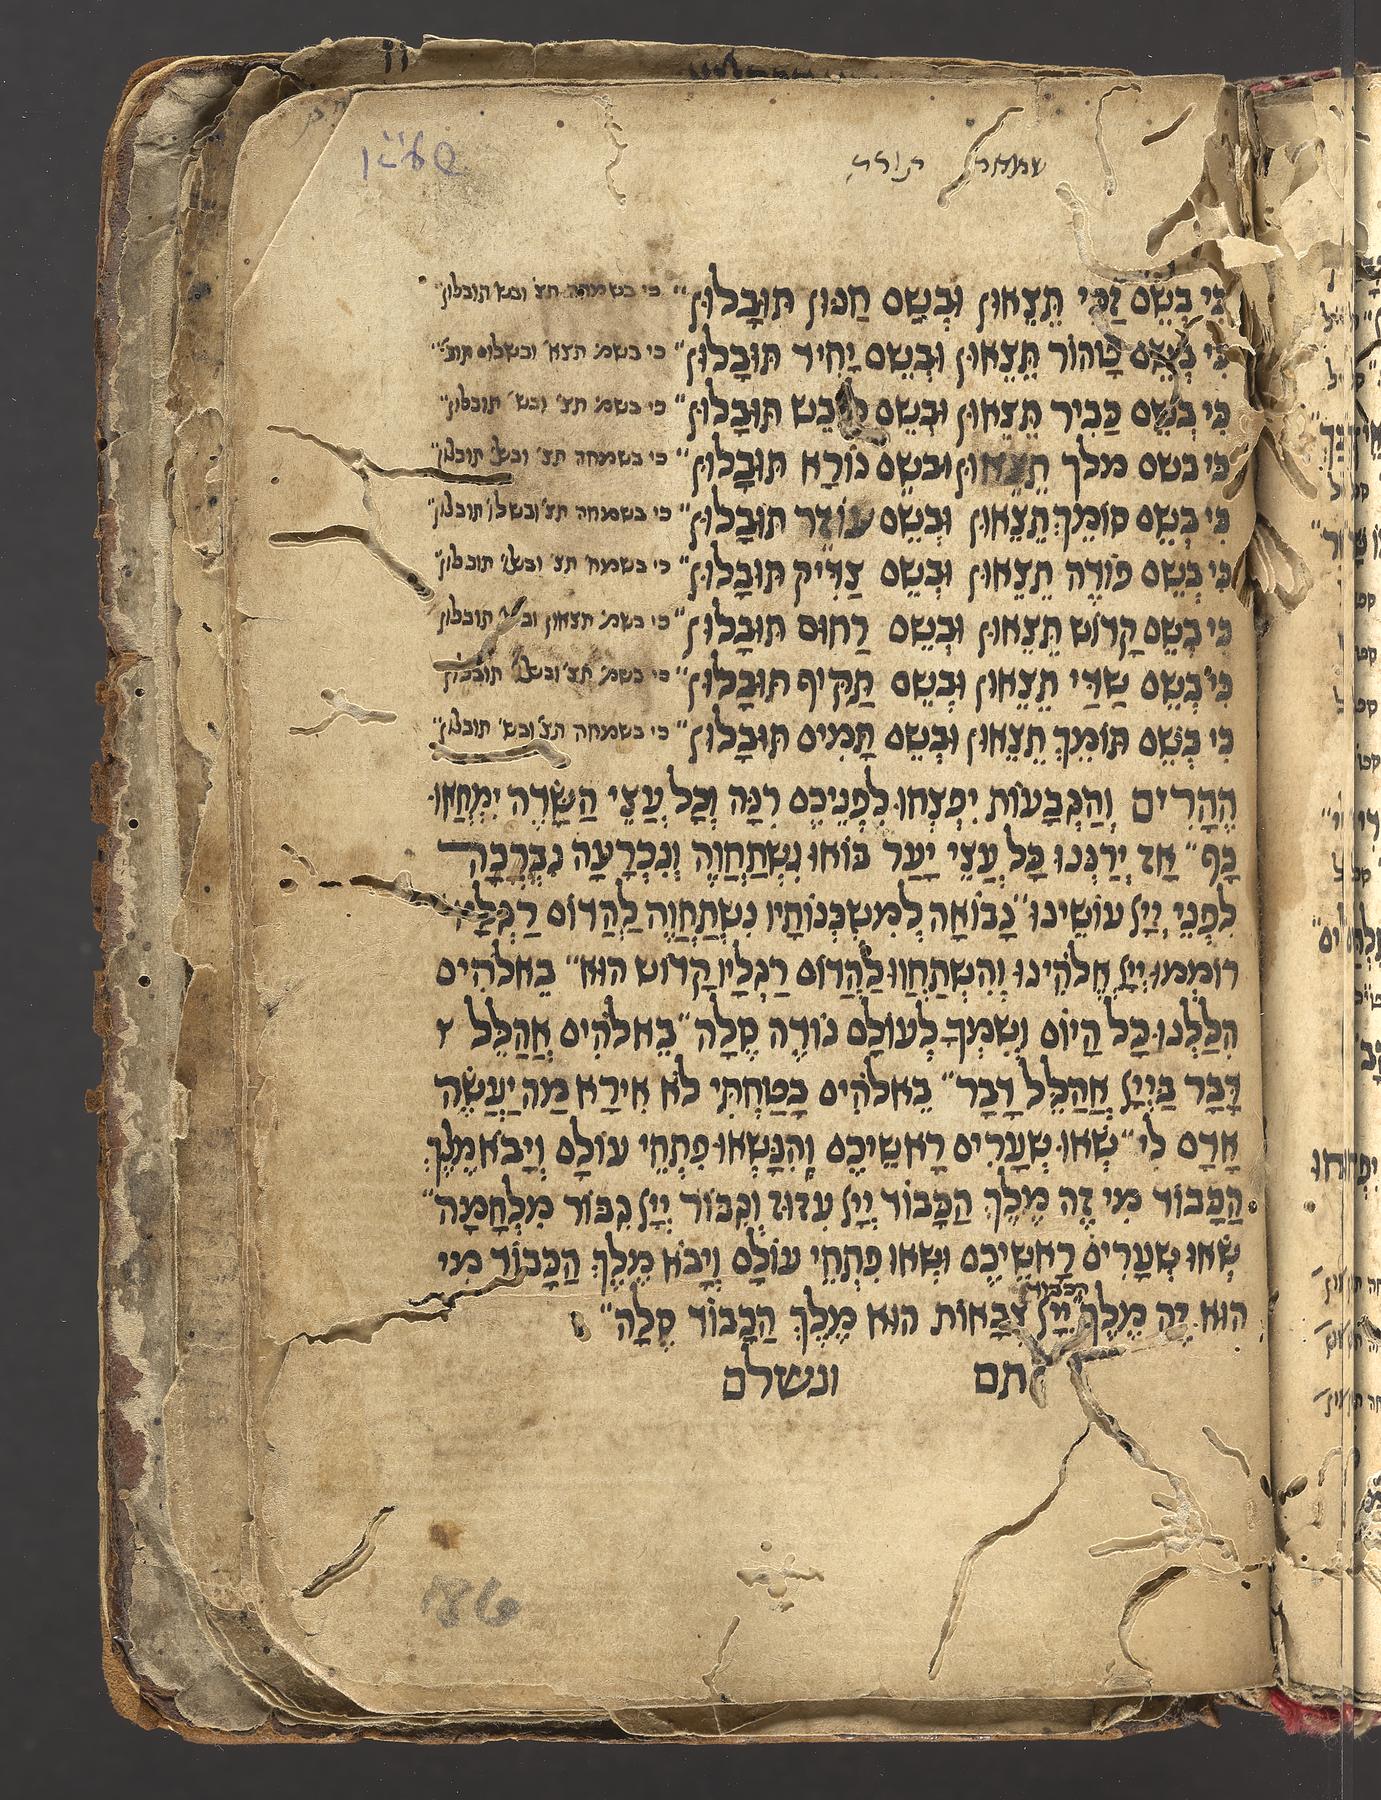 שמחת תורה
כִּי בְּשֵׁם זַכַּי תֵּצֵאוּן וּבְשֵׁם חַנּוּן תּוּבָלוּן" כי בשמחה תצ' ובש' תובלון"
כִּי בְּשֵׁם טָהוֹר תֵּצֵאוּן וּבְשֵׁם יָחִיד תּוּבָלוּן" כי בשמ' תצא' ובשלום תוב'"
כִּי בְּשֵׁם כַּבִּיר תֵּצֵאוּן וּבְשֵׁם תּוּבָלוּן" כי בשמ' תצ' ובש' תובלון"
כִּי בשם מלך תֵּצֵאוּן וּבשֵׁם נוֹרָא תּוּבָלוּן" כי בשמחה תצ' ובש' תובלון"
כִּי בְּשֵׁם סוֹמֵךְ תֵּצֵאוּן וּבְשֵׁם עוֹזֵר תּוּבָלוּן" כי בשמחה תצ' ובשלו' תובלון"
כִּי בְּשֵׁם פּוֹדֶה תֵּצֵאוּן וּבְשֵׁם צַדִּיק תּוּבָלוּן" כי בשמח' תצ' ובש' תובלון"
כִּי בְּשֵׁם קָדוֹשׁ תֵּצֵאוּן וּבְשֵׁם רַחוּם תּוּבָלוּן" כי בשמ' תצאון תובלון"
כִּי בְּשֵׁם שַׁדַּי תֵּצֵאוּן וּבְשֵׁם תַּקִּיף תּוּבָלוּן" כי בשמ' תצ' ובש' תובלון"
כִּי בְּשֵׁם תּוֹמֵךְ תֵּצֵאוּן וּבְשֵׁם תָּמִים תּוּבָלוּן" כי בשמחה תצ' ובש' תובלון"
הֶהָרִים וְהַגְּבָעוֹת יִפְצְחוּ לִפְנֵיכֶם רִנָּה וְכָל עֲצֵי הַשָּׂדֶה יִמְחֲאוּ
כָף" אָז יְרַנְּנוּ כָּל עֲצֵי יָעַר בּוֹאוּ נִשְׁתַּחֲוֶה וְנִכְרָעָה נִבְרְכָה
לִפְנֵי יְיָ עוֹשֵׂינוּ" נָבוֹאָה לְמִשְׁכְּנוֹתָיו נִשְׁתַּחֲוֶה לַהֲדוֹם רַגְלָיו
רוֹמְמוּ יְיָ אֱלֹהֵינוּ וְהִשְׁתַּחֲווּ לַהֲדוֹם רַגְלָיו קָדוֹשׁ הוּא" בֵּאלֹהִים
הִלַּלְנוּ כָל הַיּוֹם וְשִׁמְךָ לְעוֹלָם נוֹדֶה סֶלָה" בֵּאלֹהִים אֲהַלֵּל
דָּבָר בַּיְיָ אֲהַלֵּל דָּבָר" בֵּאלֹהִים בָּטַחְתִּי לֹא אִירָא מַה יַּעֲשֶׂה
אָדָם לִי" שְׂאוּ שְׁעָרִים רָאשֵׁיכֶם וְהִנָּשְׂאוּ פִּתְחֵי עוֹלָם וְיָבֹא מֶלֶךְ
הַכָּבוֹד מִי זֶה מֶלֶךְ הַכָּבוֹד יְיָ עִזּוּז וְגִבּוֹר יְיָ גִּבּוֹר מִלְחָמָה"
שְׂאוּ שְׁעָרִים רָאשֵׁיכֶם וּשְׂאוּ פִּתְחֵי עוֹלָם וְיָבֹא מֶלֶךְ הַכָּבוֹד מִי
הוּא זֶה מֶלֶךְ הכבוד יְיָ צְבָאוֹת הוּא מֶלֶךְ הַכָּבוֹד סֶלָה"
תם ונשלם
186